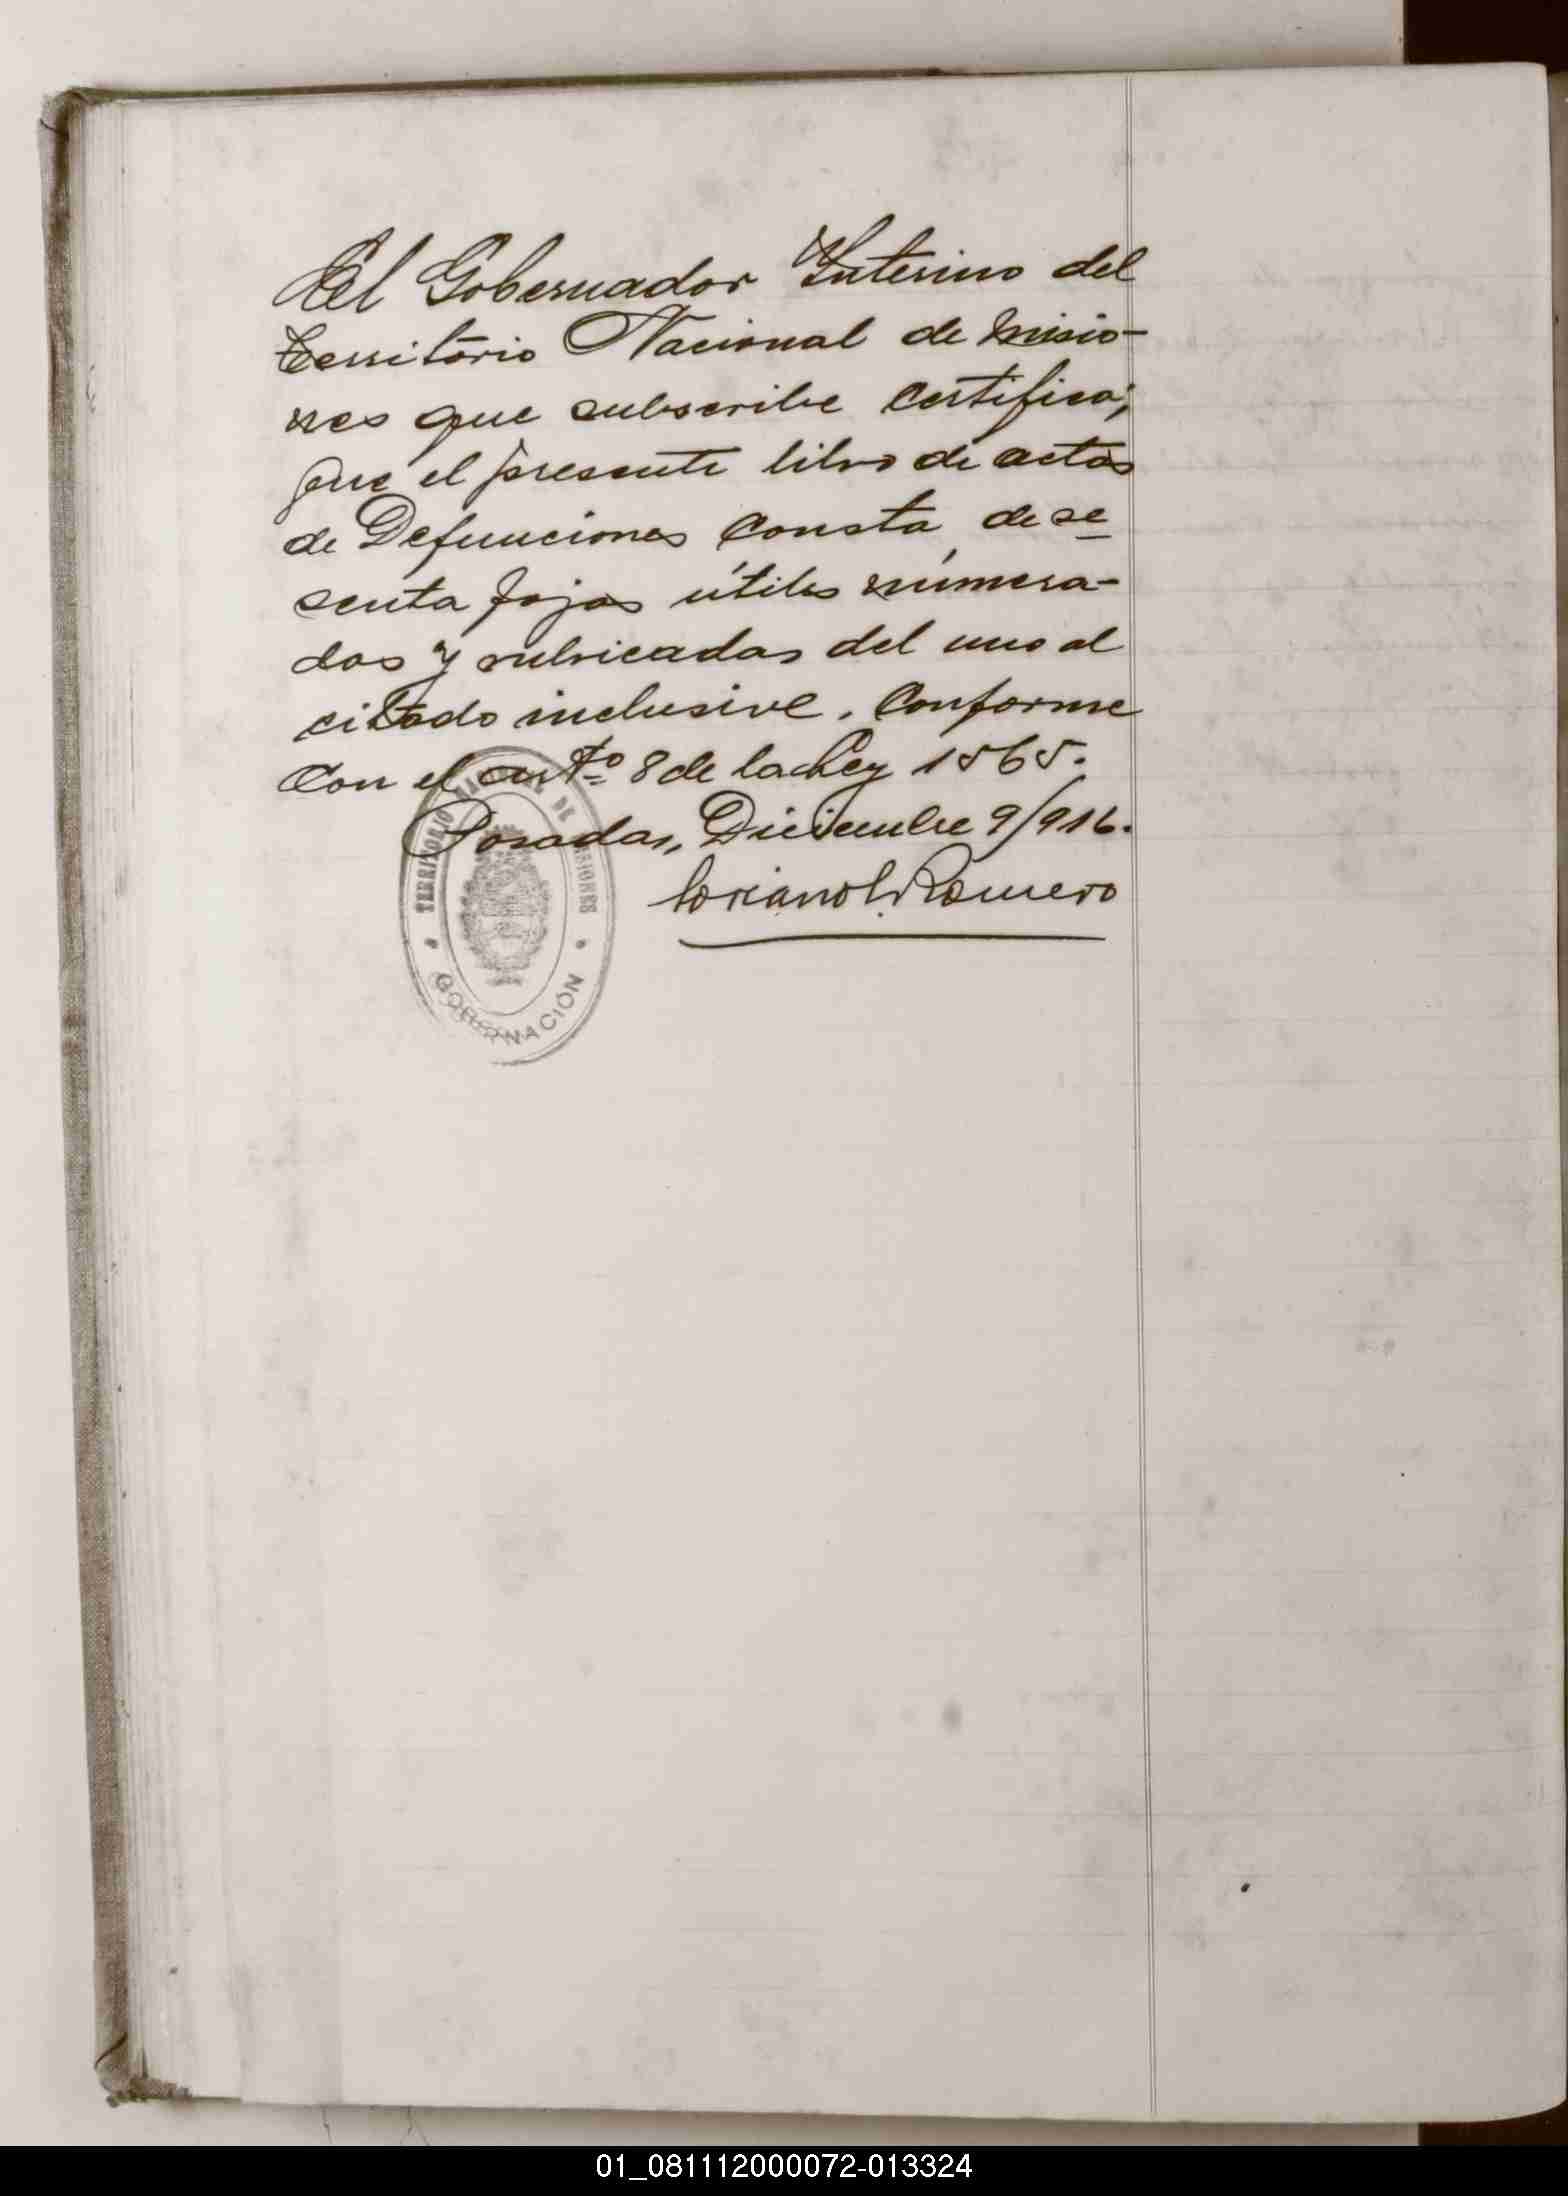 El Gobernador Interino del
Territorio Nacional de Misio-
nes que subscribe certifica;
que el presente libro de actas
de Defunciones consta de se
senta fojas útiles númera-
das y rubricadas del uno al
citado inclusive. Conforme
con el arto 8 de la Ley 1565.
Posadas, Diciembre 9/916.
Romero
TERRITORIO NACIONAL DE MISIONES
GOBERNACIÓN
01_081112000072-013324